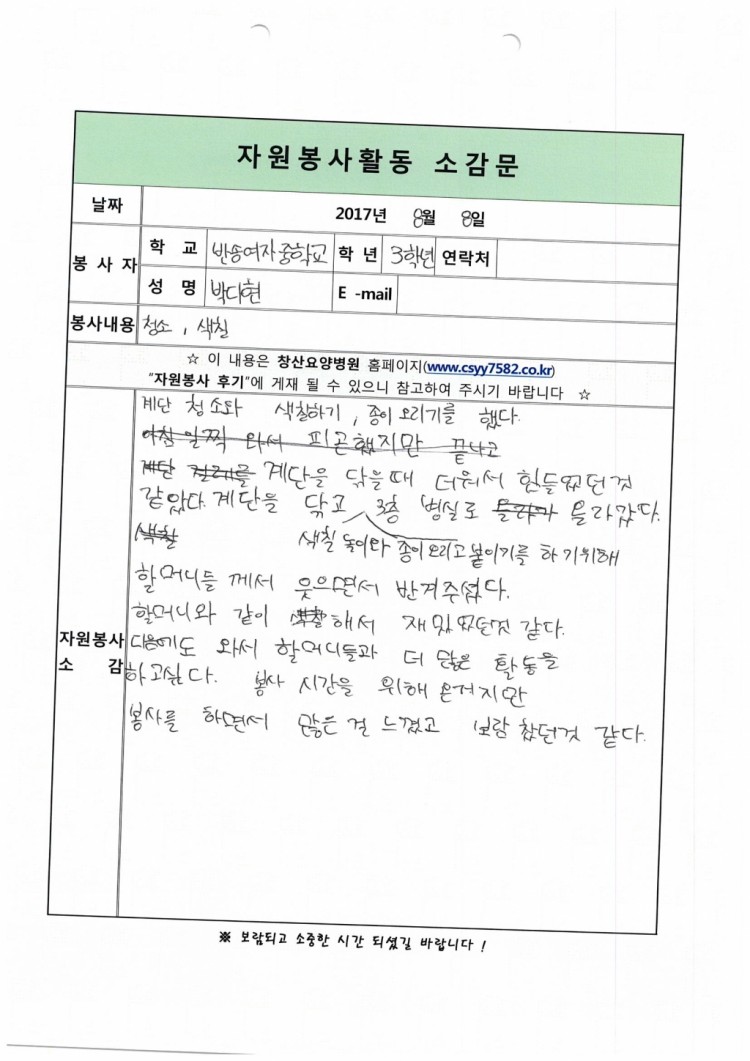 자원봉사활동 소감문
날짜 2017년 8월 8일
봉사자 학교 반송여자중학교 학년 3학년 연락처
성명 박다현 E-mail
봉사내용 청소, 색칠
☆ 이 내용은 창산요양병원 홈페이지(www.csyy7582.co.kr)
"자원봉사 후기"에 게재 될 수 있으니 참고하여 주시기 바랍니다 ☆
자원봉사 소감
계단 청소와 색칠하기, 종이 오리기를 했다.
아침 일찍 와서 피곤했지만 끝나고
계단 걸레를 계단을 닦을때 더워서 힘들었던것
같았다. 계단을 닦고 3층 병실로 올라가 올라갔다.
색칠 색칠 놀이와 종이오리고 붙이기를 하기위해
할머니들 께서 웃으면서 반겨주셨다.
할머니와 같이 색칠 해서 재밌었던것 같다.
다음에도 와서 할머니들과 더 많은 활동을
하고싶다. 봉사 시간을 위해 온거지만
봉사를 하면서 많은 걸 느꼈고 보람 찼던것 같다.
※ 보람되고 소중한 시간 되셨길 바랍니다!